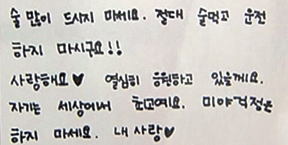 술 많이 드시지 마세요. 절대 술먹고 운전
하지 마시구요!!
사랑해요♥ 열심히 응원하고 있을께요.
자기는 세상에서 최고예요. 미아걱정은
하지 마세요. 내 사랑♥